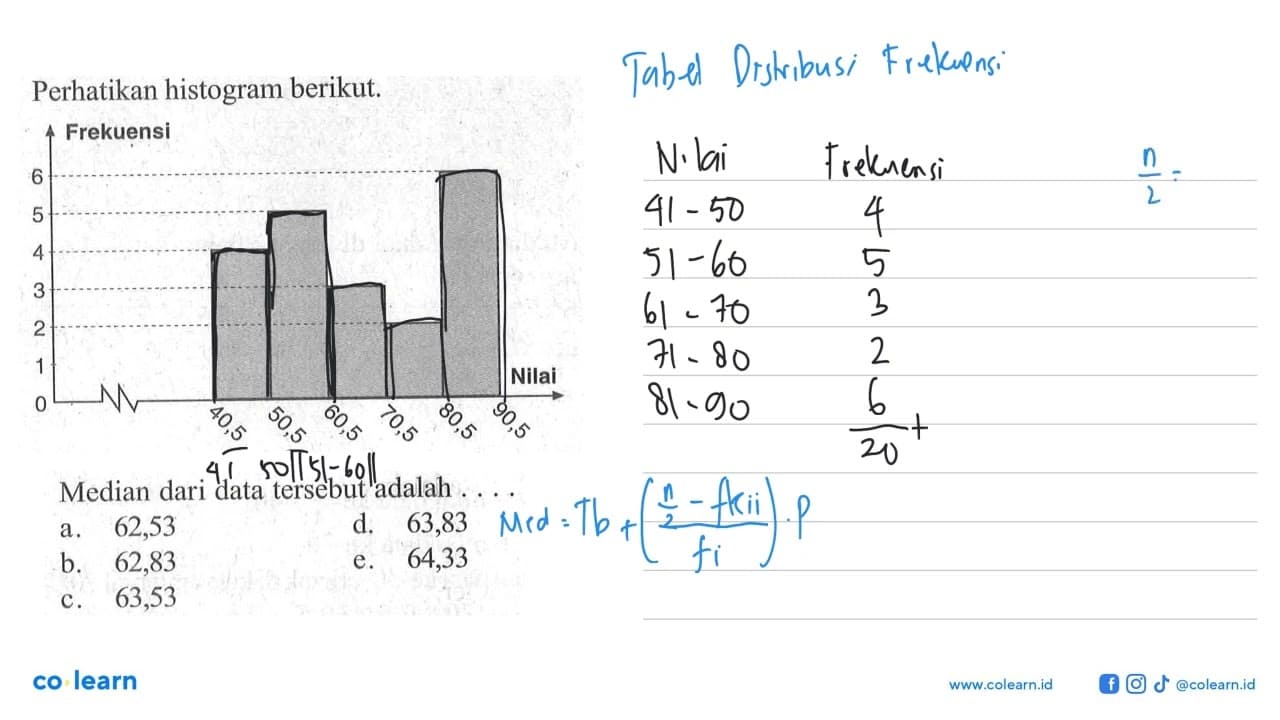 Perhatikan histogram berikut.
Frekuensi
6
5
4
3
2
1
0
Nilai
40,5 50,5 60,5 70,5 80,5 90,5
41 50 51-60
Median dari data tersebut adalah . . . .
a. 62,53
b. 62,83
c. 63,53
d. 63,83
e. 64,33
Tabel Distribusi Frekuensi
Nilai Frekuensi
41 - 50 4
51 - 60 5
61 - 70 3
71 - 80 2
81 - 90 6
+
20
n/2 =
Med = Tb + ((n/2 - fkii)/fi) . P
co learn
www.colearn.id
@colearn.id